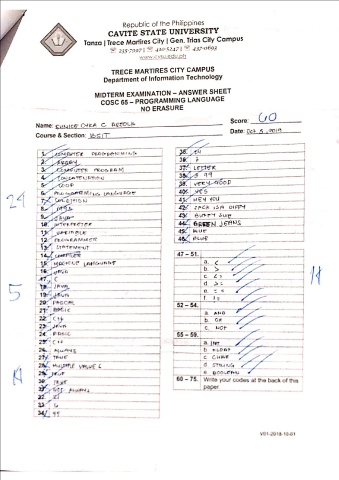 Republic of the Philippines
CAVITE STATE UNIVERSITY
Tanza | Trece Martires City | Gen. Trias City Campus
www.cvsu.edu.ph
TRECE MARTIRES CITY CAMPUS
Department of Information Technology
MIDTERM EXAMINATION – ANSWER SHEET
COSC 65 – PROGRAMMING LANGUAGE
NO ERASURE
Score: 60
Name:
Date: Oct 5, 2019
Course & Section: BSIT
1. COMPUTER PROGRAMMING
2. BINARY
3. COMPUTER PROGRAM
4. CONCATENATION
5. LOOP
6. PROGRAMMING LANGUAGE
7.
8.
9. JAVA
10. INTERPRETER
11. VARIABLE
12. PROGRAMMER
13. STATEMENT
14. COMPILER
15. MACHINE LANGUAGE
16. JAVA
17. C
18. JAVA
19. JAVA
20. PASCAL
21. BASIC
22. C++
23. JAVA
24. BASIC
25. C++
26. ALWAYS
27. TRUE
28. MULTIPLE VALUES
29. TRUE
30. TRUE
31. NOT ALWAYS
32.
33.
34.
35.
36.
37. LETTER
38.
39. VERY GOOD
40. YES
41. HEY YOU
42. JACK IS A DAFFY
43.
44. GREEN JEANS
45. BLUE
46. BLUE
47 – 51.
a. <
b. >
c. <=
d. >=
e. ==
f. !=
52 – 54.
a. AND
b. OR
c. NOT
55 – 59.
a. INT
b. FLOAT
c. CHAR
d. STRING
e. BOOLEAN
60 – 75. Write your codes at the back of this
paper
24
5
14
V01-2018-10-01